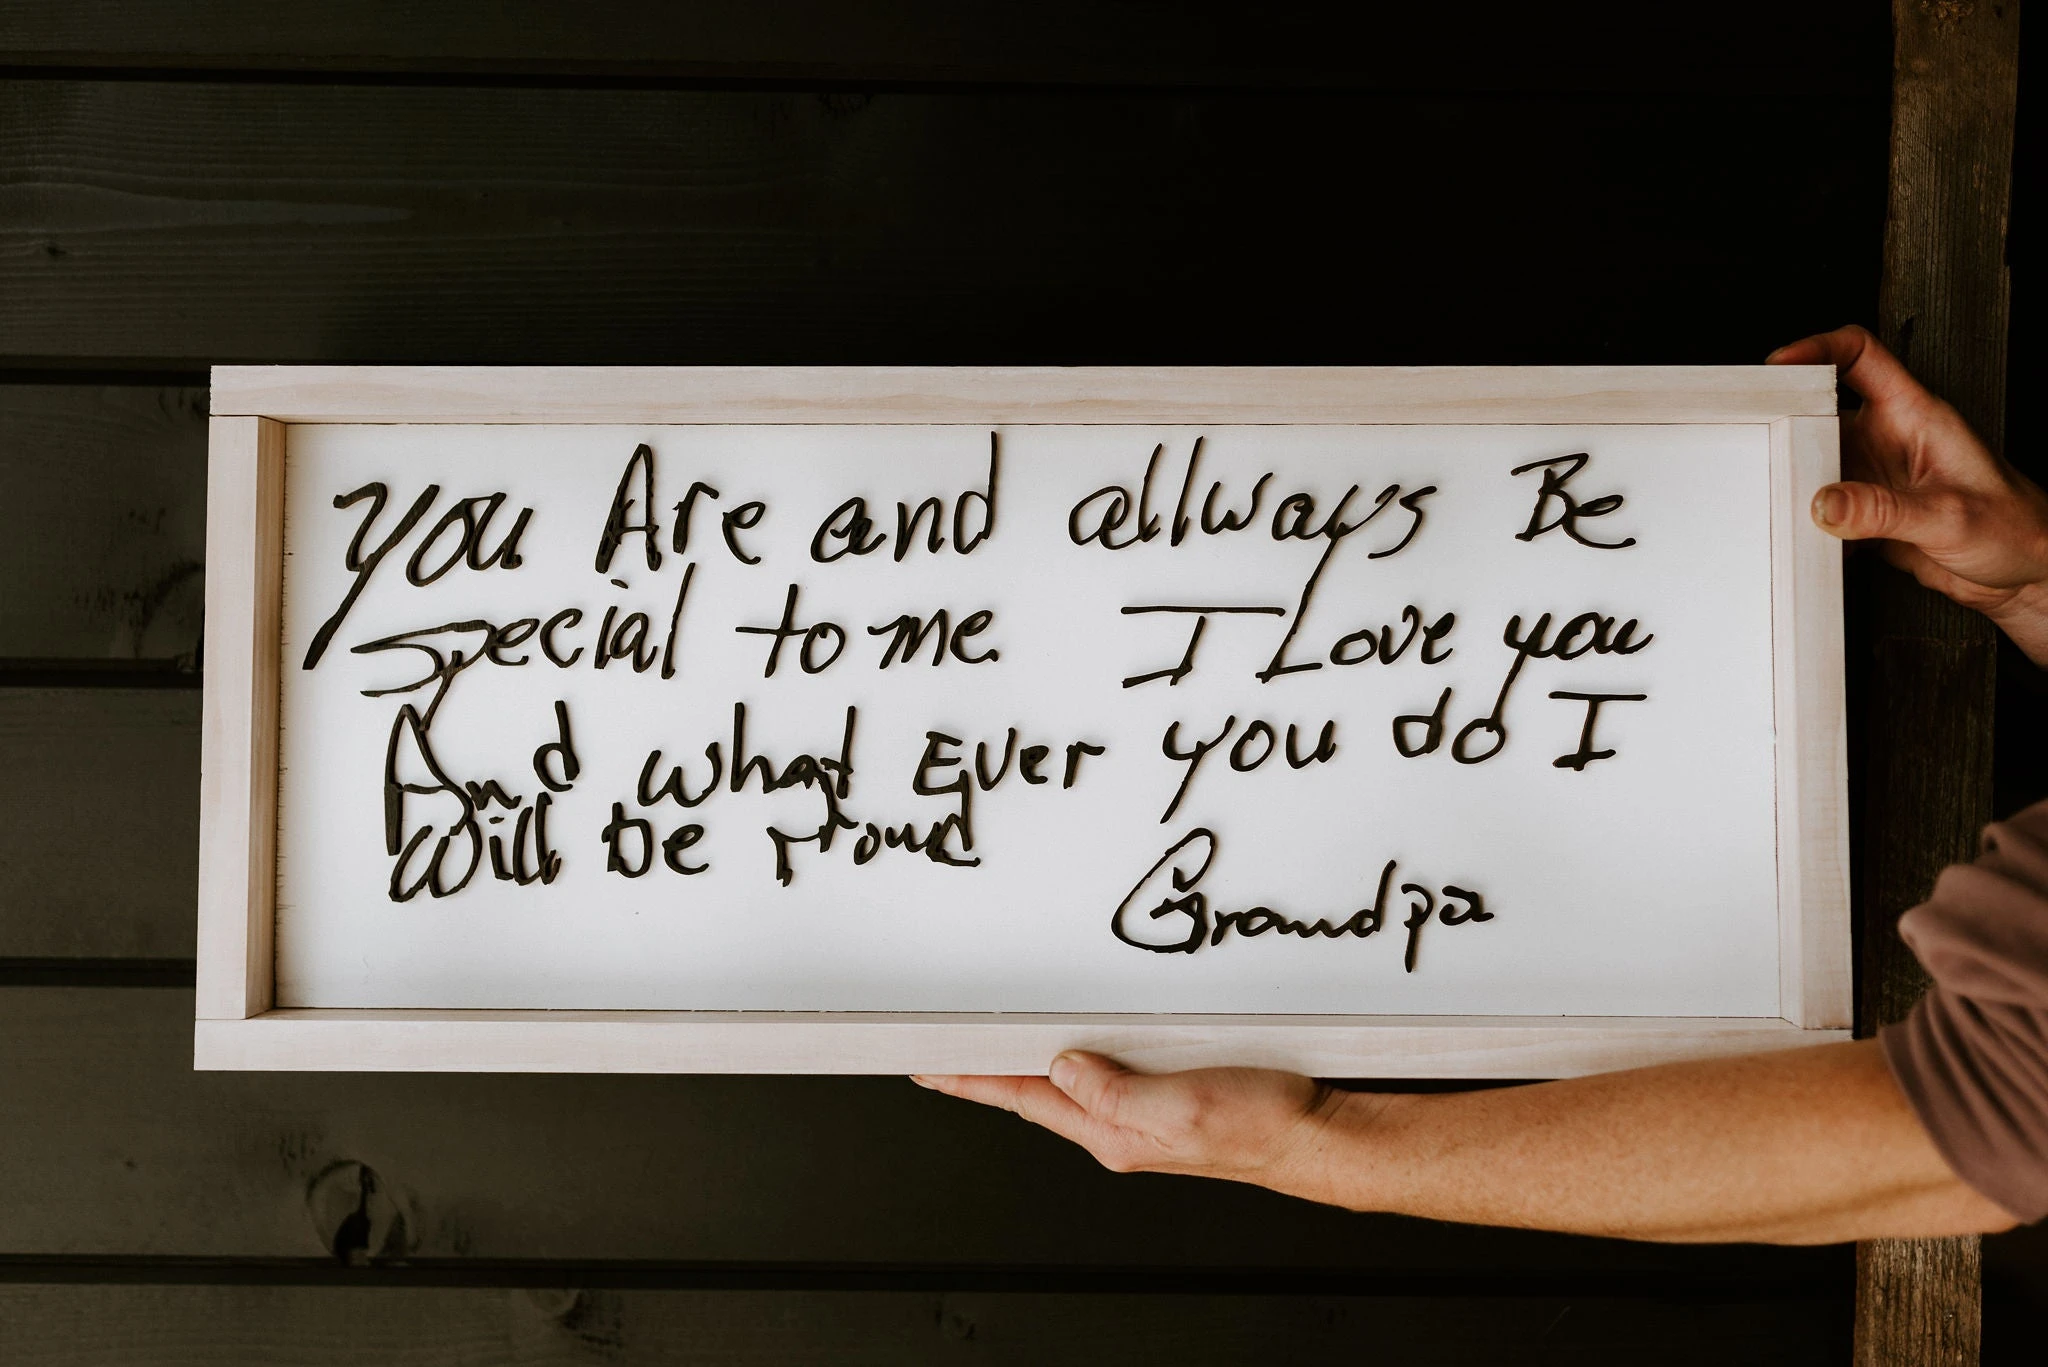 you Are and allways Be
special to me I Love you
And what Ever you do I
will be proud
Grandpa